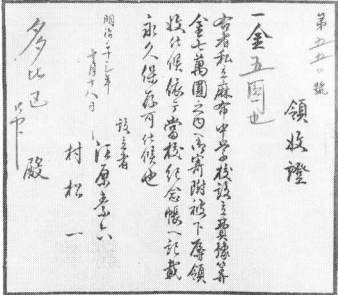 第五五〇號
領收證
一金五圓也
右者私立麻布中學校設立費豫算
金七萬圓之内へ御寄附被下辱領
收仕候依テ當校紀念帳へ記載
永久保存可仕候也
明治三十三年
十月十八日
設立者
江原素六
村松一
殿